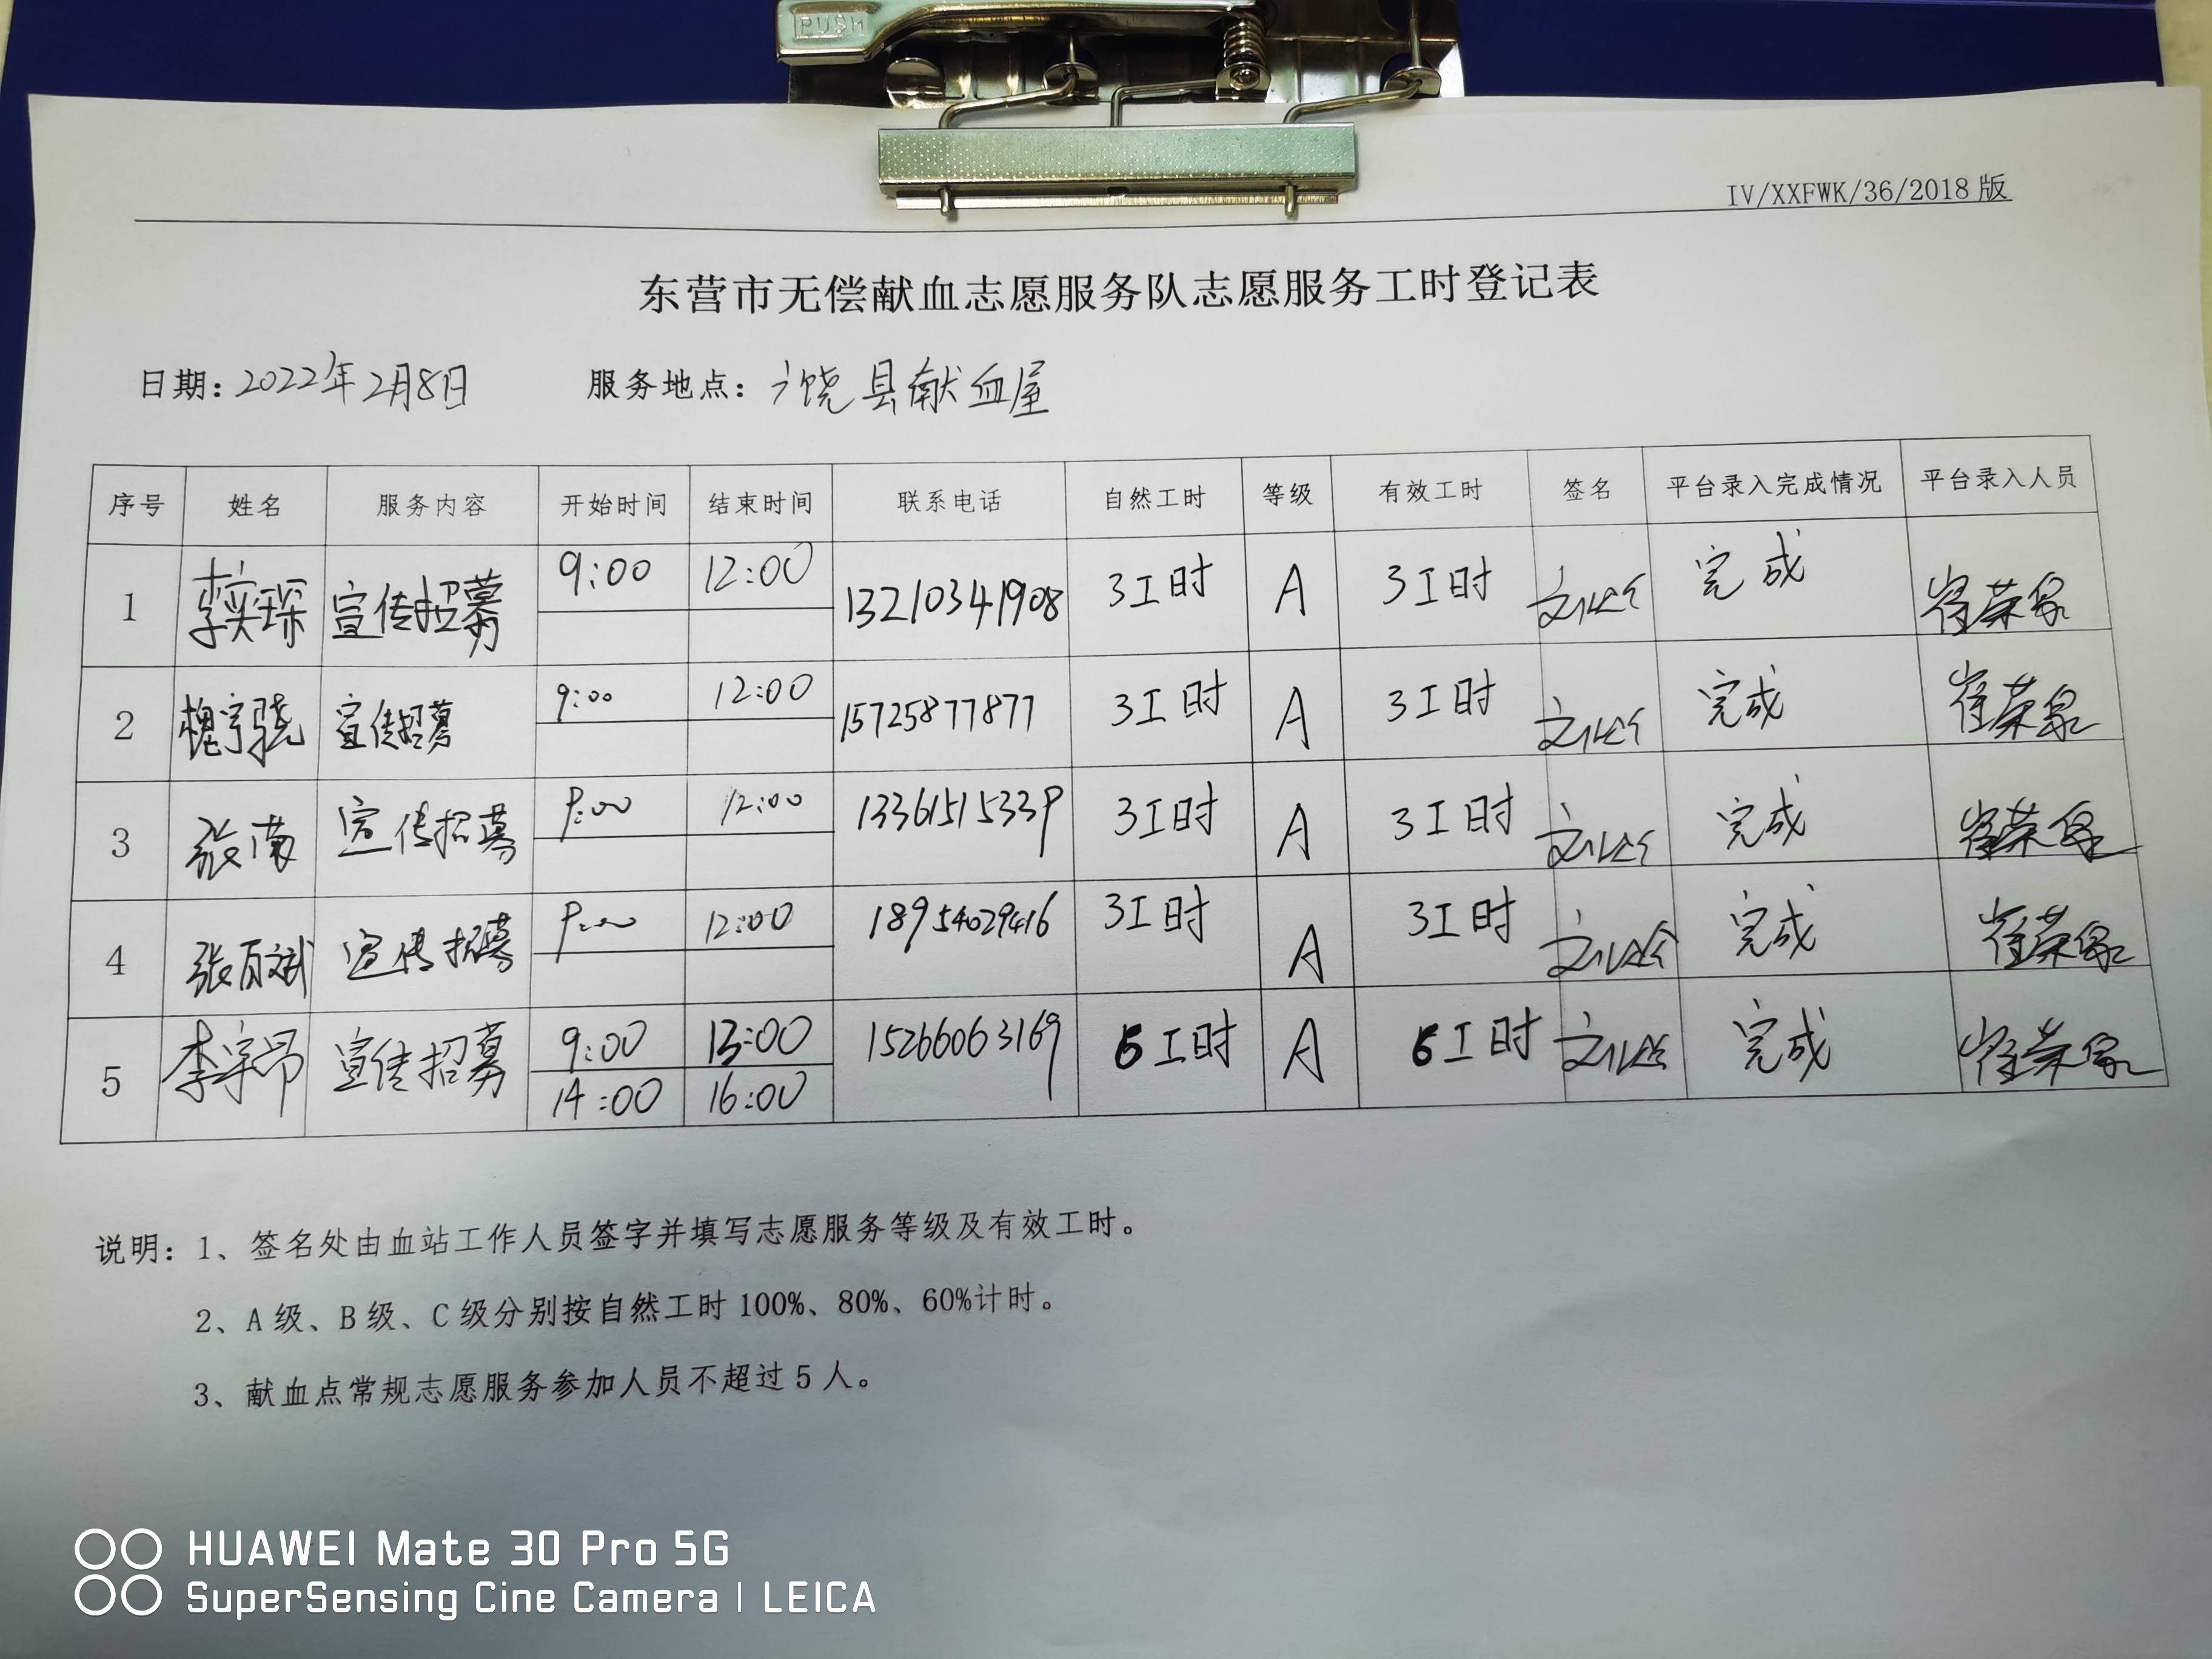 PUSH
IV/XXFWK/36/2018版
东营市无偿献血志愿服务队志愿服务工时登记表
日期：2022年2月8日 服务地点：广饶县献血屋
序号 姓名 服务内容 开始时间 结束时间 联系电话 自然工时 等级 有效工时 签名 平台录入完成情况 平台录入人员
1 李奕琛 宣传招募 9:00 12:00 13210341908 3工时 A 3工时 完成 崔荣泉
2 槐宇骁 宣传招募 9:00 12:00 15725877877 3工时 A 3工时 完成 崔荣泉
3 张南 宣传招募 9:00 12:00 13361515339 3工时 A 3工时 完成 崔荣泉
4 张百斌 宣传招募 9:00 12:00 18954029416 3工时 A 3工时 完成 崔荣泉
5 李宇昂 宣传招募 9:00 13:00 15266063169 6工时 A 6工时 完成 崔荣泉
14:00 16:00
说明：1、签名处由血站工作人员签字并填写志愿服务等级及有效工时。
2、A级、B级、C级分别按自然工时100%、80%、60%计时。
3、献血点常规志愿服务参加人员不超过5人。
HUAWEI Mate 30 Pro 5G
SuperSensing Cine Camera | LEICA